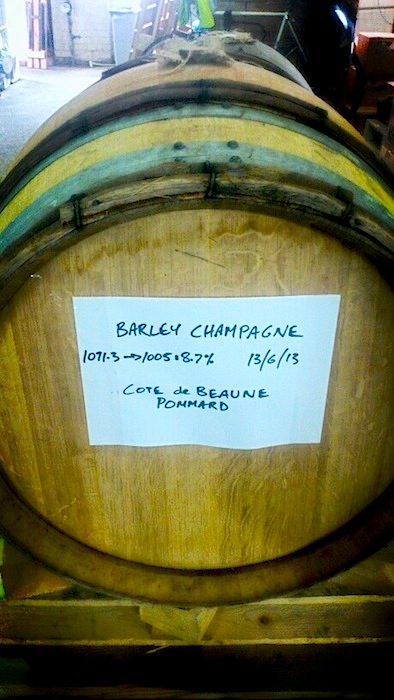 BARLEY CHAMPAGNE
1071.3 → 1005 : 8.7% 13/6/13
COTE de BEAUNE
POMMARD